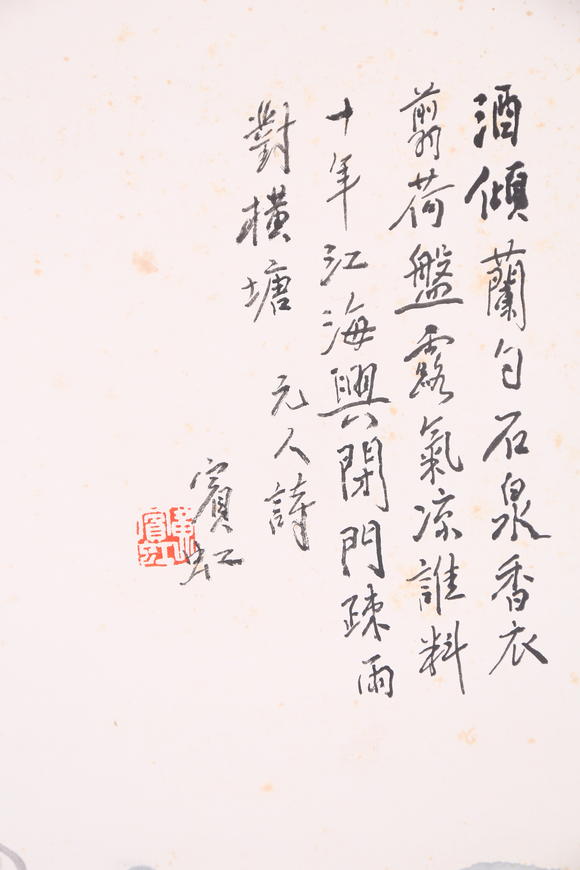 酒傾蘭勺石泉香衣
翦荷盤露氣凉誰料
十年江海興閉門疎雨
對橫塘 元人詩
賓虹
黃賓虹